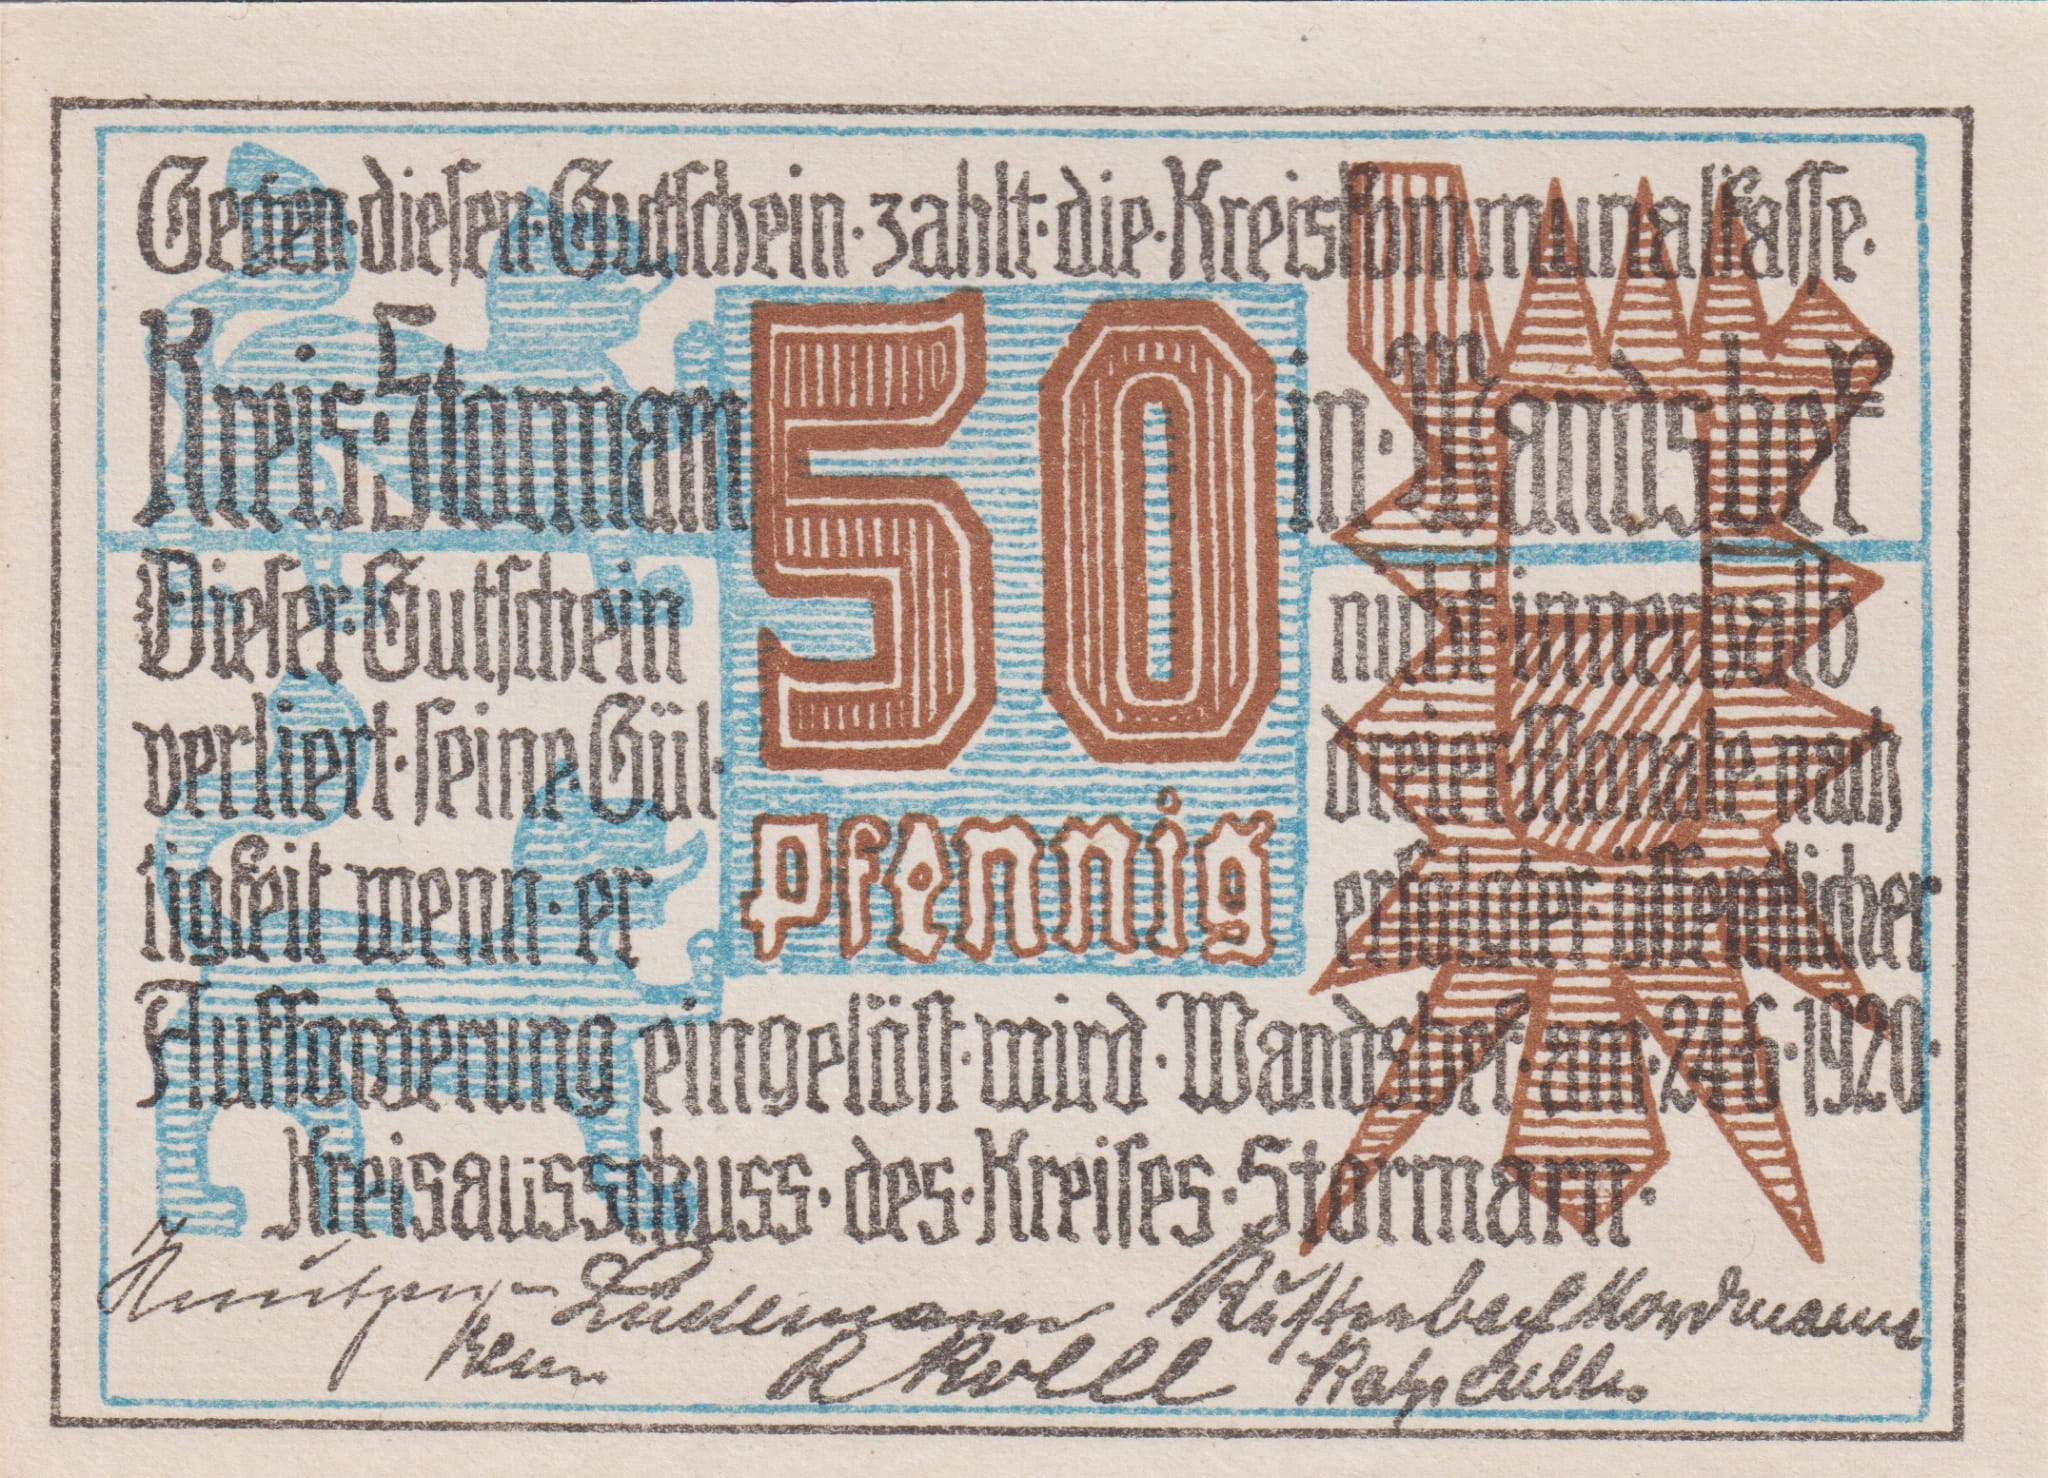 Gegen·diesen·Gutschein·zahlt·die·Kreiskommunalkasse·
Kreis·Stormarn
50
in·Wandsbek
Pfennig
Dieser·Gutschein
nicht·innerhalb
verliert·seine·Gül·
dreier·Monate·nach
tigkeit wenn·er
erfolgter·öffentlicher
Aufforderung eingelöst·wird·Wandsbek·am·24·6·1920·
Kreisausschuss·des·Kreises·Stormarn·
Lüdemann